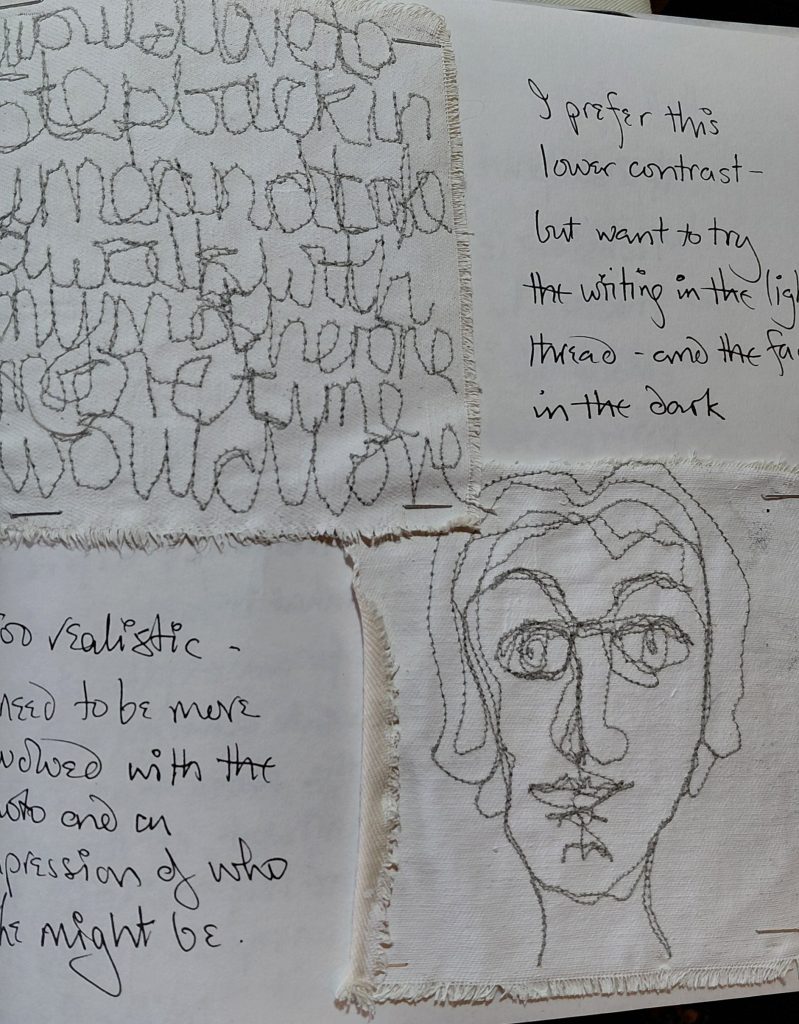 would love to
step back in
time and take
a walk with
my mother one
more time
would love
I prefer this
lower contrast –
but want to try
the writing in the
thread – and the
in the dark
realistic –
need to be more
with the
and an
of who
might be.